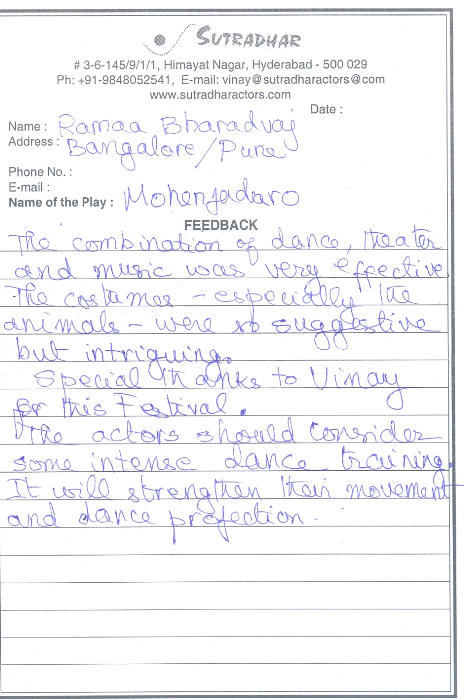 SUTRADHAR
# 3-6-145/9/1/1, Himayat Nagar, Hyderabad - 500 029
Ph: +91-9848052541, E-mail: vinay@sutradharactors@com
www.sutradharactors.com
Date :
Name : Ramaa Bharadvaj
Address : Bangalore/Pune
Phone No. :
E-mail :
Name of the Play : Mohenjadaro
FEEDBACK
The combination of dance, theater
and music was very effective
The costumes - especially the
animals - were so suggestive
but intriguing.
Special thanks to Vinay
for this Festival.
The actors should consider
some intense dance training.
It will strengthen their movement
and dance projection.